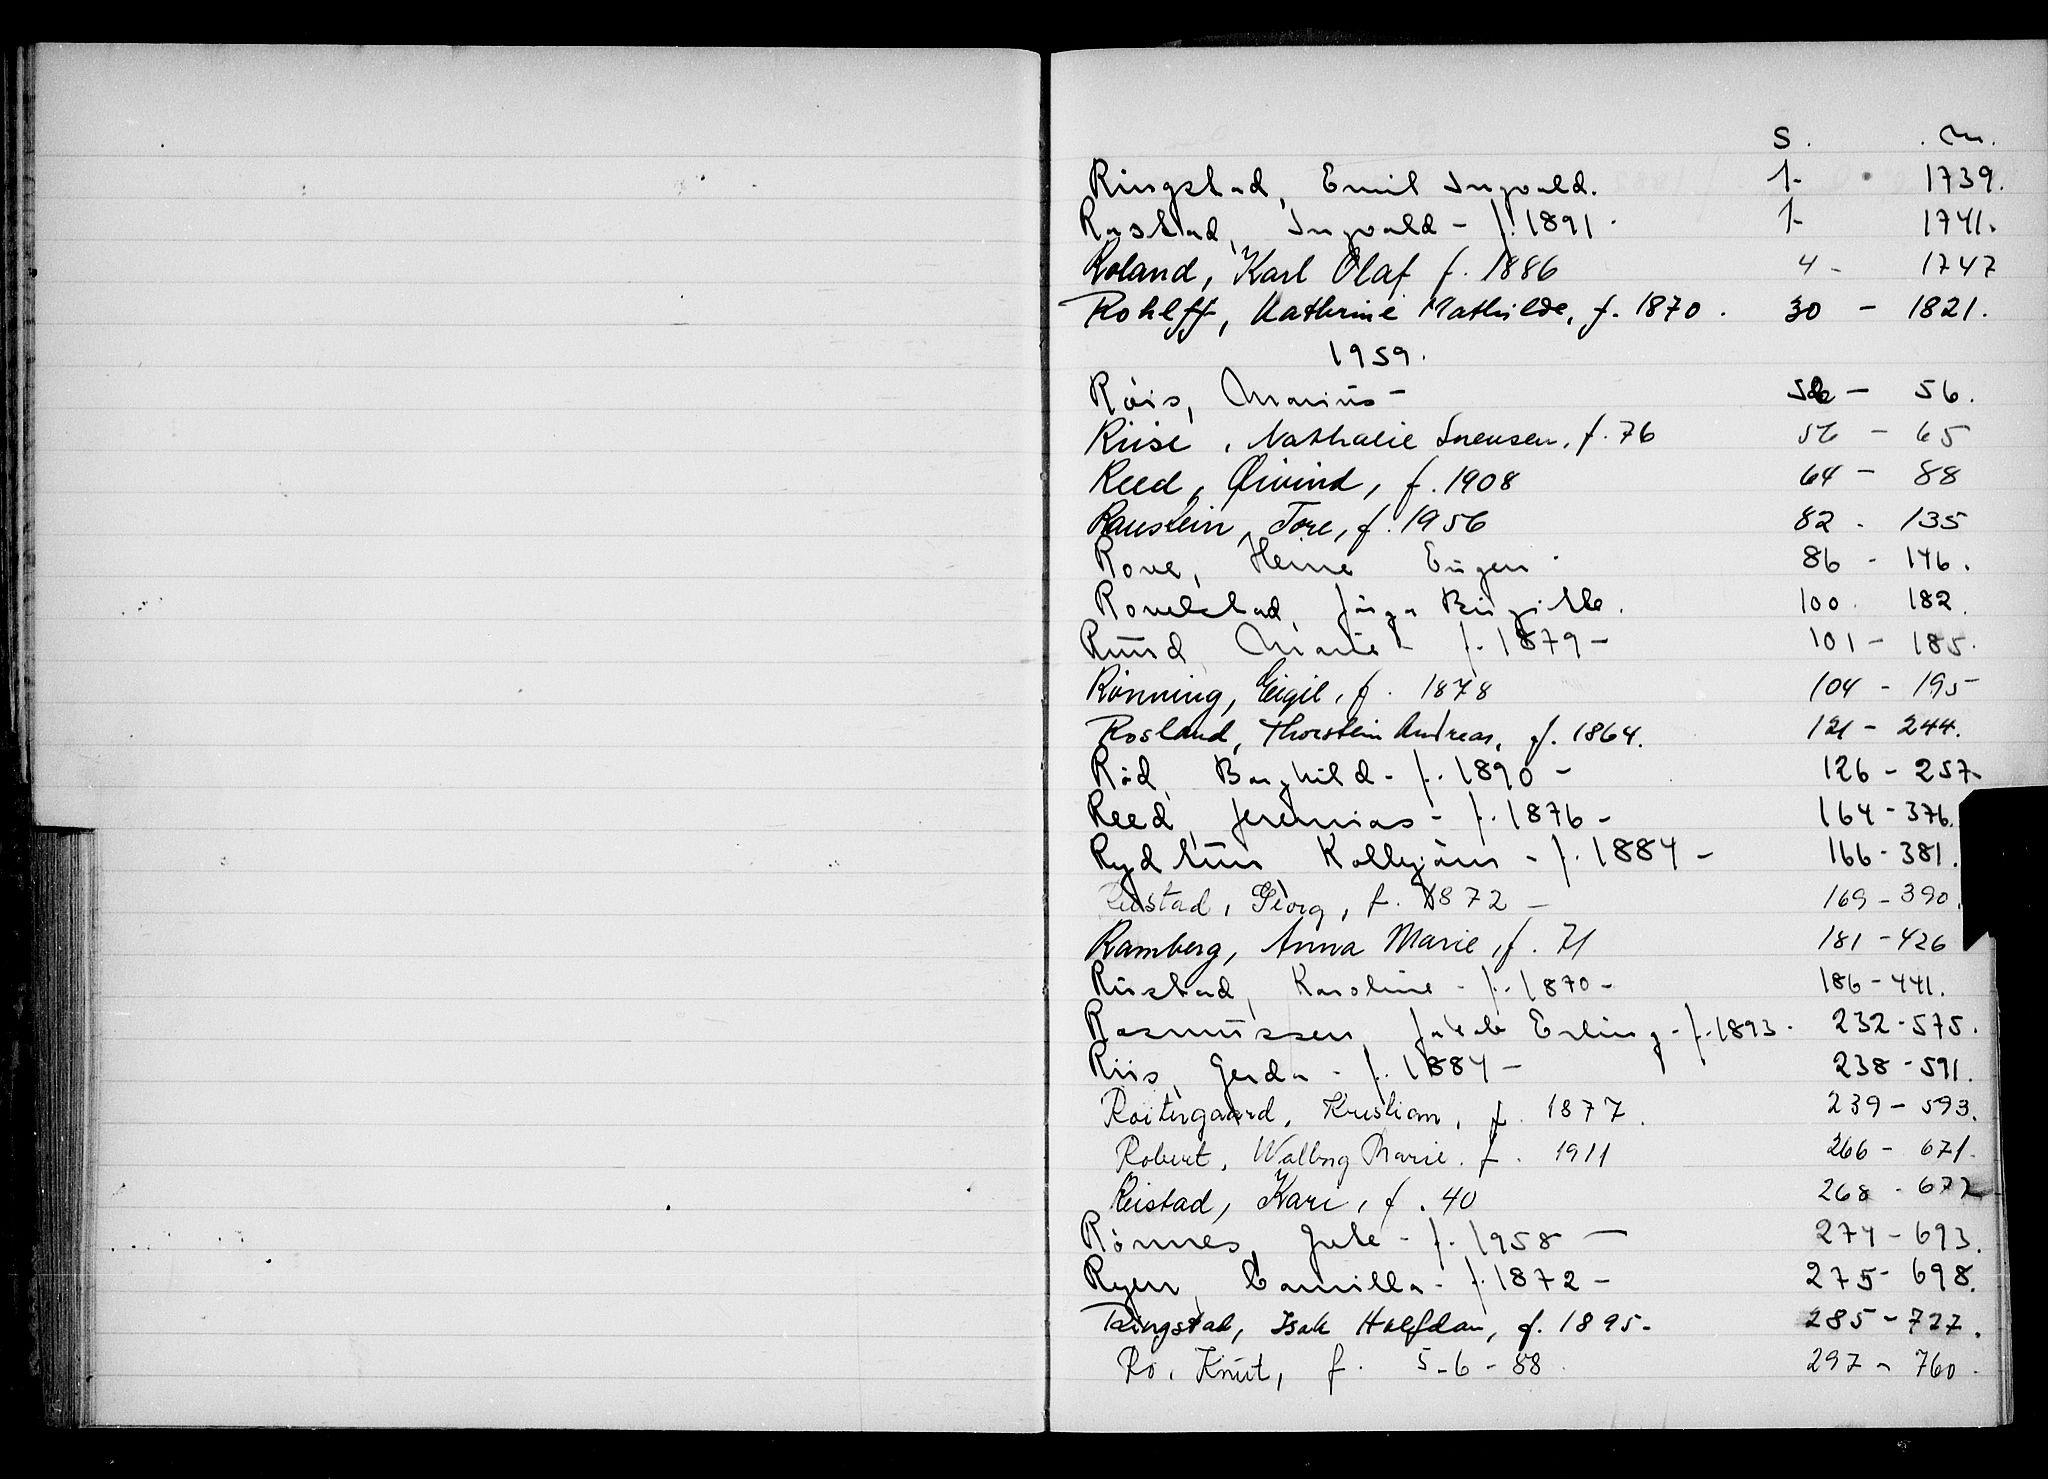 S. Nr.
Ringstad, Emil Ingvald. 1- 1739.
Rostad, Ingvald - f. 1891. 1- 1741.
Roland, Karl Olaf f. 1886 4 - 1747
Rohlff, Kathrine Mathilde, f. 1870. 30 - 1821.
1959.
Marius - - 56.
Riise, Nathalie Sørensen, f. 76 56 - 65
Reed, Øivind, f. 1908 64 - 88
Raustein, Tore, f. 1956 82 - 135
Rove, Heine Eugen 86 - 146.
Rovelstad, Birgitte. 100. 182.
Ruud, Marie - f. 1879 - 101 - 185.
Rønning, Eigil, f. 1878 104 - 195
Rosland, Thorstein Andreas, f. 1864. 121 - 244.
Rød, Borghild - f. 1890 - 126 - 257-
Reed, Jeremias - f. 1876 - 164 - 376.
Kolbjørn - f. 1884 - 166 - 381.
Reistad, Georg, f. 1872 - 169 - 390.
Ramberg, Anna Marie, f. 71 181 - 426
Rustad, Karoline - f. 1870 - 186 - 441.
Rasmussen, Jakob Erling - f. 1893. 232 - 575.
Riis, Gerda - f. 1884 - 238 - 591.
Kristian, f. 1877. 239 - 593.
Robert, Walborg Marie. f. 1911 266 - 671.
Reistad, Kari, f. 40 268 - 672
Rønnes, - f. 1958 - 274 - 693.
Ryen, Camilla - f. 1872 - 275 - 698.
Ringstad, Isak Halfdan, f. 1895. 285 - 727.
Ro, Knut, f. 5-6-88. 297 - 760.